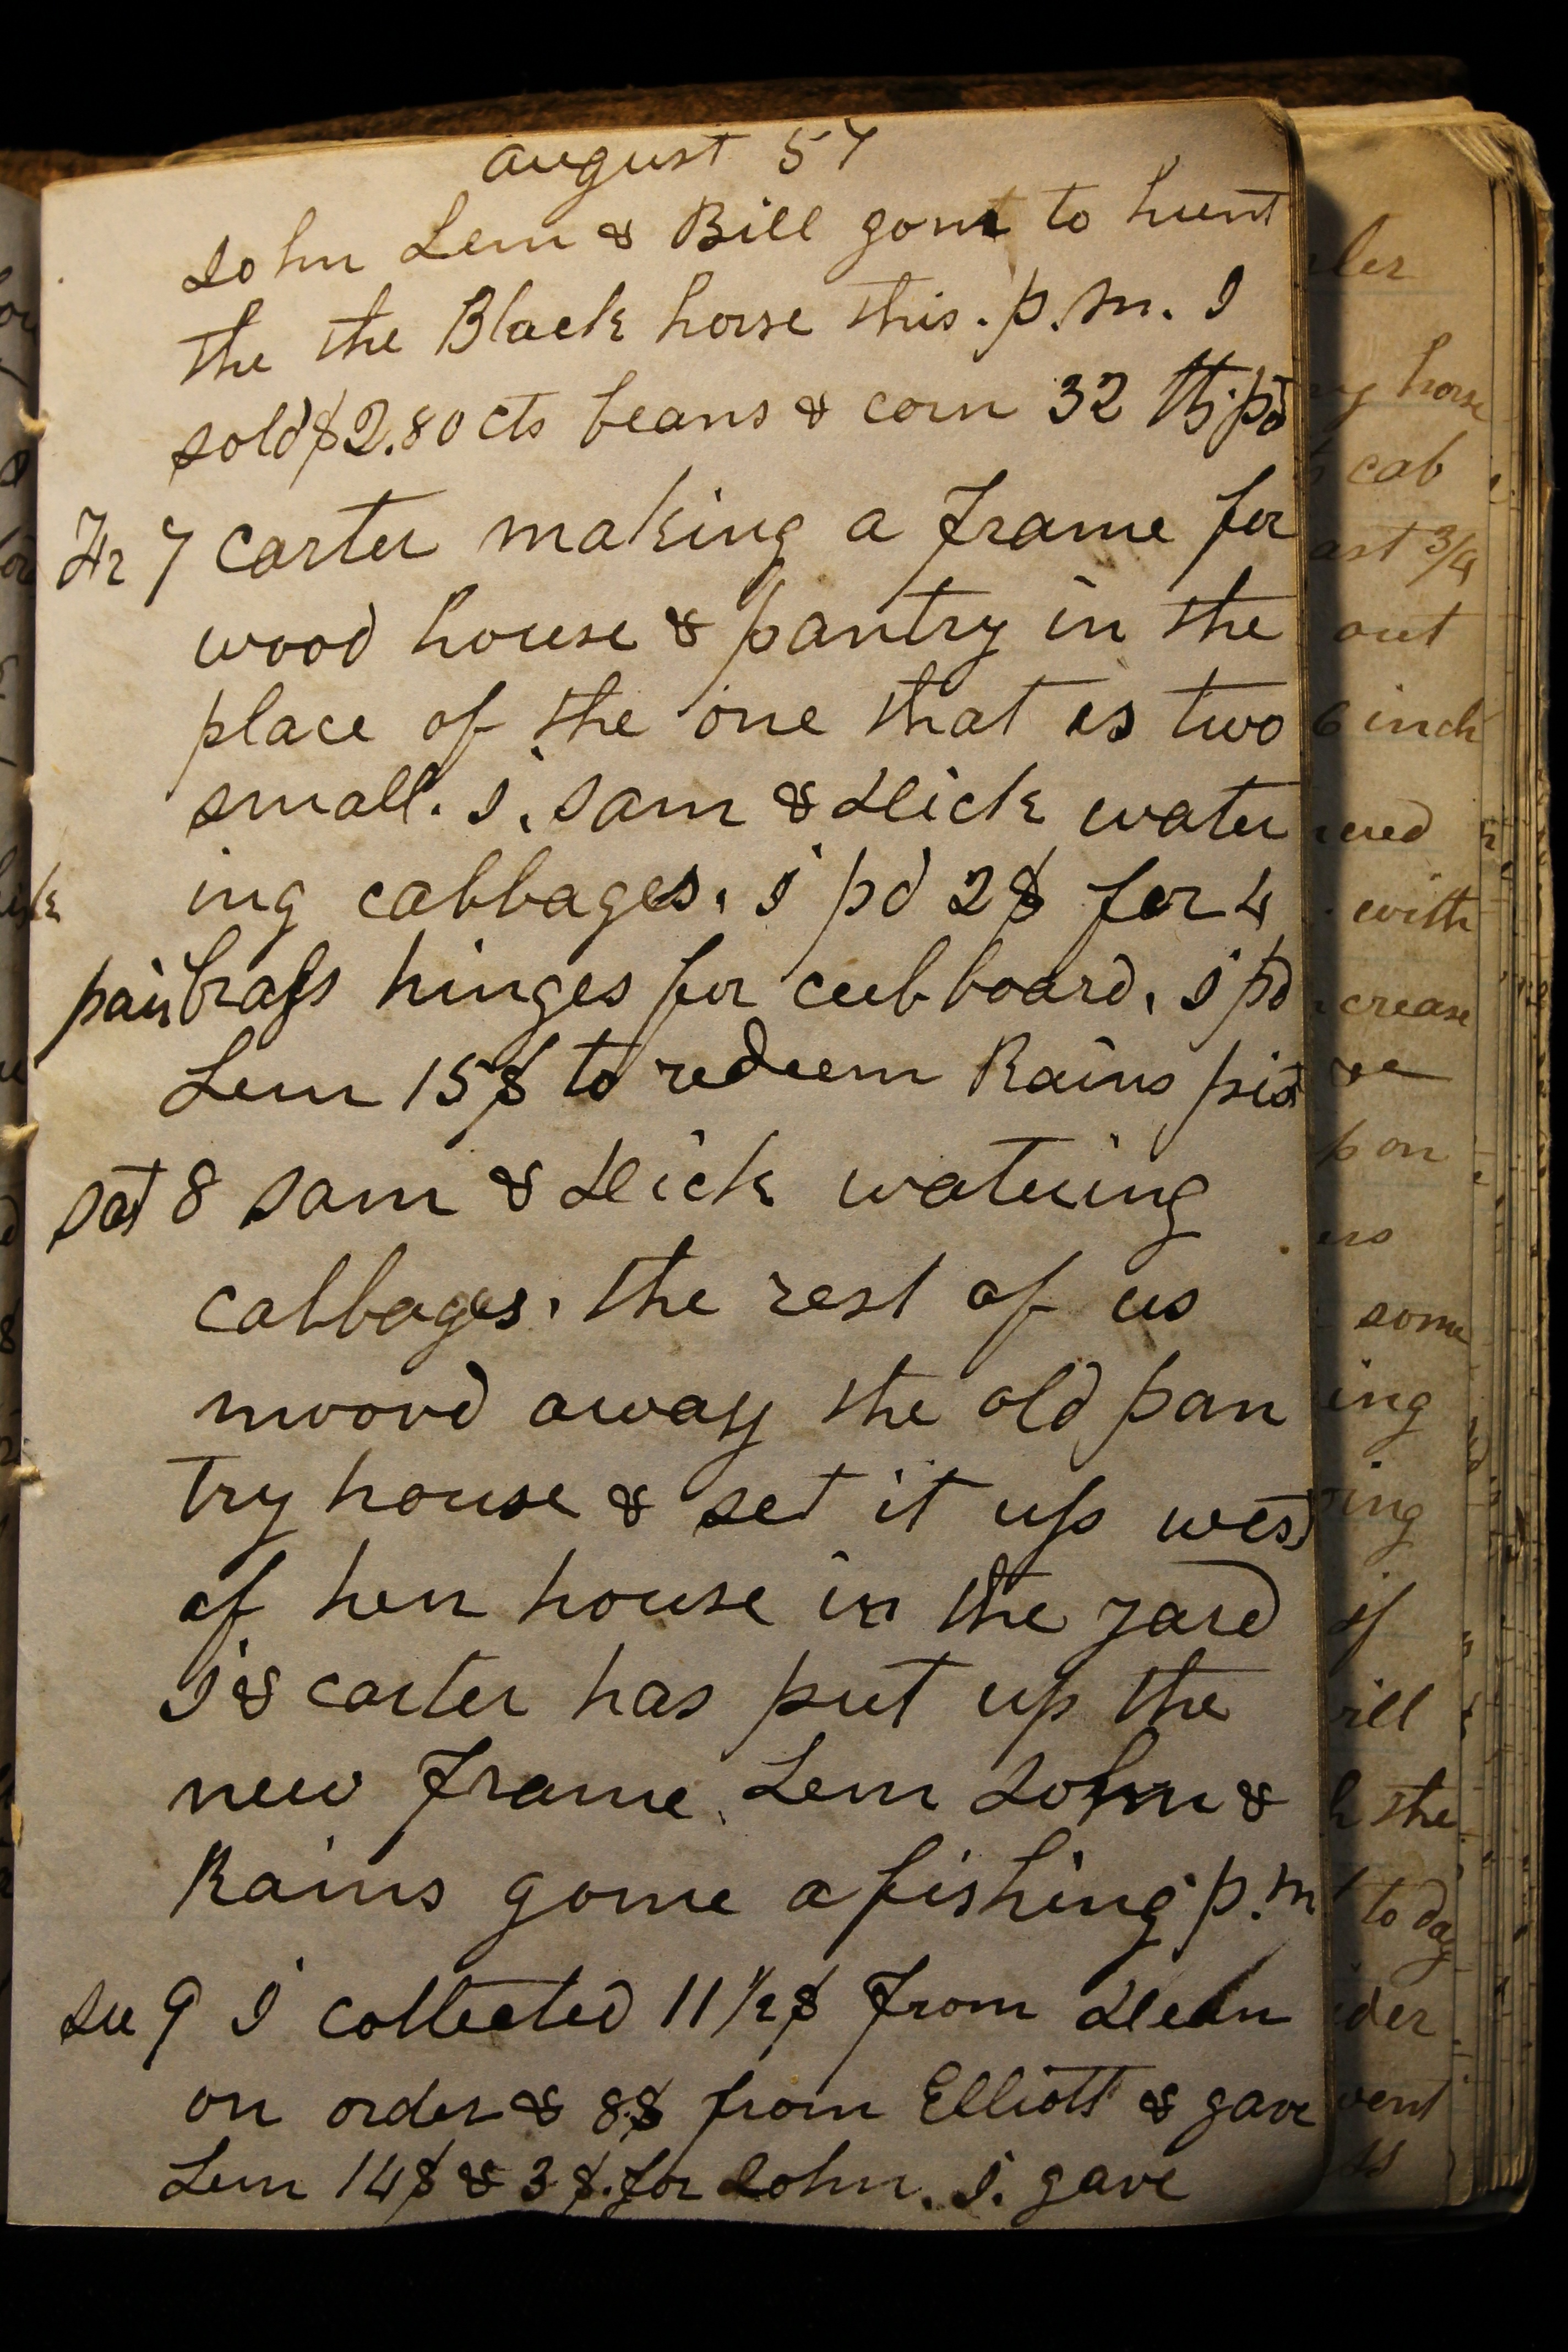 august 57
John Lem & Bill gont to hunt
the the Black horse this. p.m. I
sold $2.80 cts beans & corn 32 lb pd
Fr 7 carter making a frame for
wood house & pantry in the
place of the one that is two
small. I, Sam & Dick water
ing cabbages. I pd 2$ for 4
pair brass hinges for cubboard. I pd
Lem 15$ to redeem Rains pist
Sat 8 Sam & Dick watering
cabbages. the rest of us
moovd away the old pan
try house & set it up west
of hen house in the yard
I & carter has put up the
new frame. Lem John &
Rains gone a fishing p.m
Su 9 I collected 11 1/2$ from
on order & 8$ from Elliott & gave
Lem 14$ & 3$ for John. I. gave
ler
horse
cab
ast 3/4
out
6 inch
ered
with
crease
on
ers
some
ing
ing
if
ill
the
to day
ider
vent